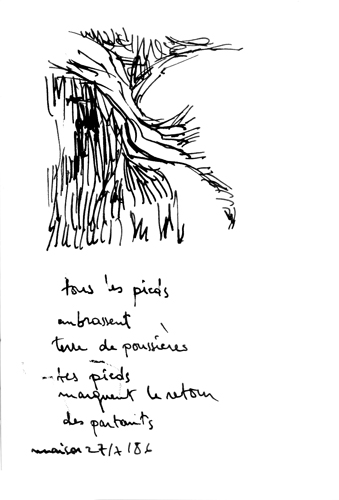 tous les pieds
embrassent
terre de poussières
Les pieds
marquent le retour
des partants
27/7/86